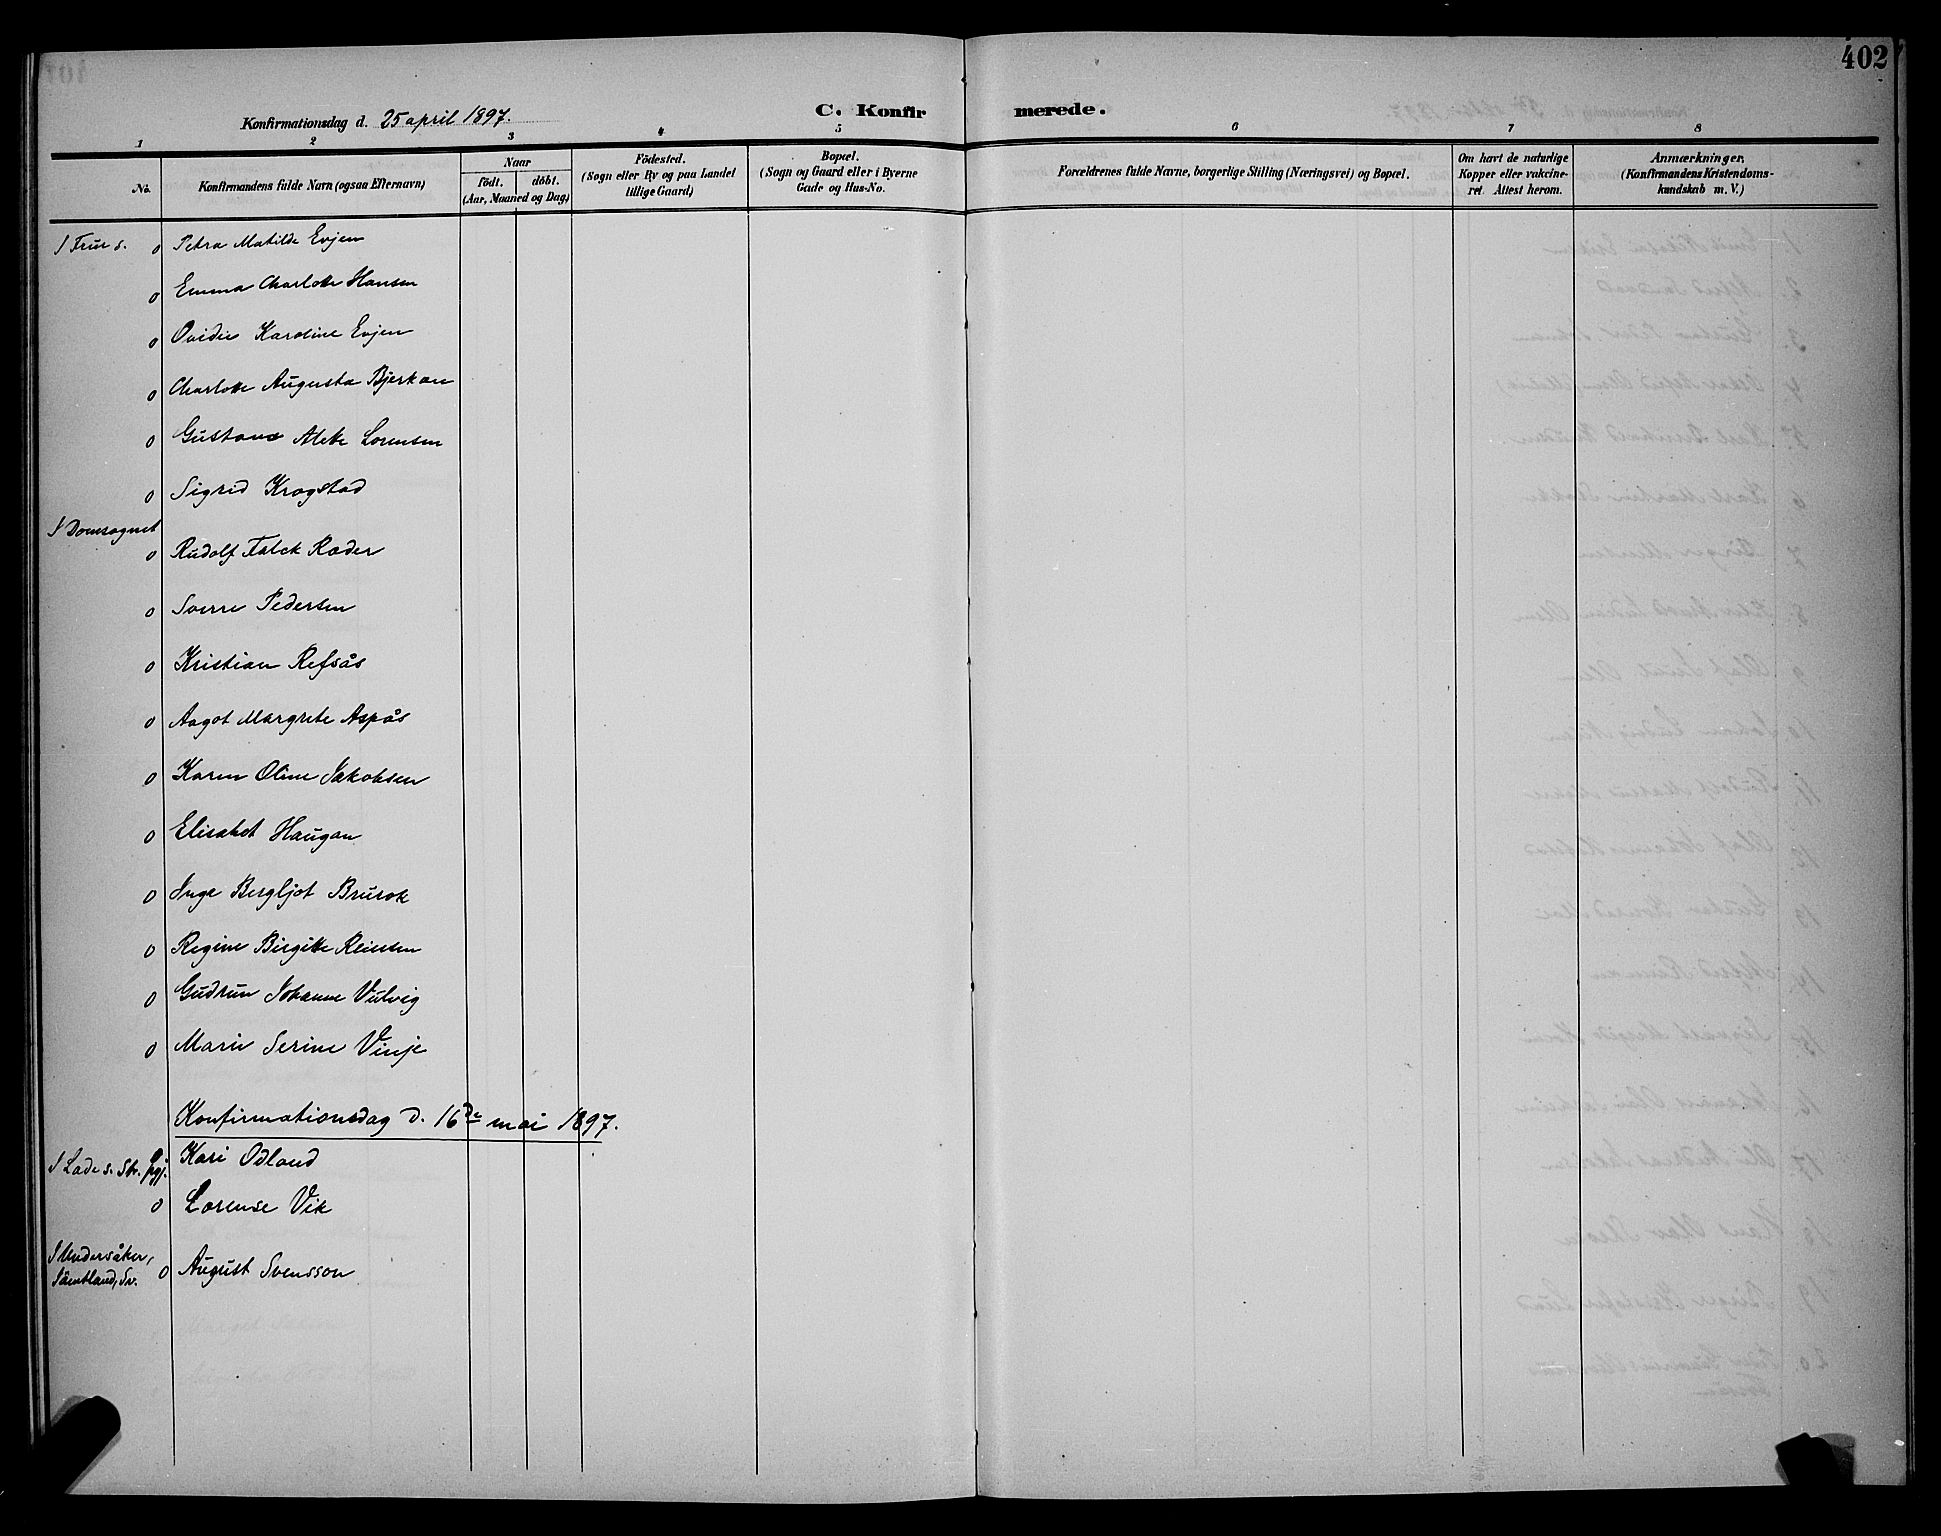 402
Konfirmationsdag d. 25 april 1897.
C. Konfirmerede.
1 2 3 4 5 6 7 8
No.
Konfirmandens fulde Navn (ogsaa Efternavn)
Naar
födt. döbt.
(Aar, Maaned og Dag)
Födested.
(Sogn eller By og paa Landet
tillige Gaard)
Bopæl.
(Sogn og Gaard eller i Byerne
Gade og Hus-No.
Forældrenes fulde Navne, borgerlige Stilling (Næringsvei) og Bopæl.
Om havt de naturlige
Kopper eller vakcine-
ret. Attest herom.
Anmærkninger.
(Konfirmandens Kristendoms-
kundskab m. V.)
I Frue s. o Petra Matilde Evjen
o Emma Charlotte Hansen
o Ovidie Karoline Evjen
o Charlotte Augusta Bjerkan
o Gustava Alette Lorensen
o Sigrid Krogstad
I Domsognet
o Rudolf Falck Ræder
o Sverre Pedersen
o Kristian Refsås
o Aagot Margrete Aspås
o Karen Oline Jakobsen
o Elisabet Haugan
o Inga Bergljot Brurok
o Regine Birgitte Reinsen
o Gudrun Johanne Vulvig
o Marie Serine Vinje
Konfirmationsdag d. 16de mai 1897.
I Lade s. Str. pgj. o Kari Odland
o Lorense Vik
I Undersåker,
Jämtland, Sv. o August Svensson